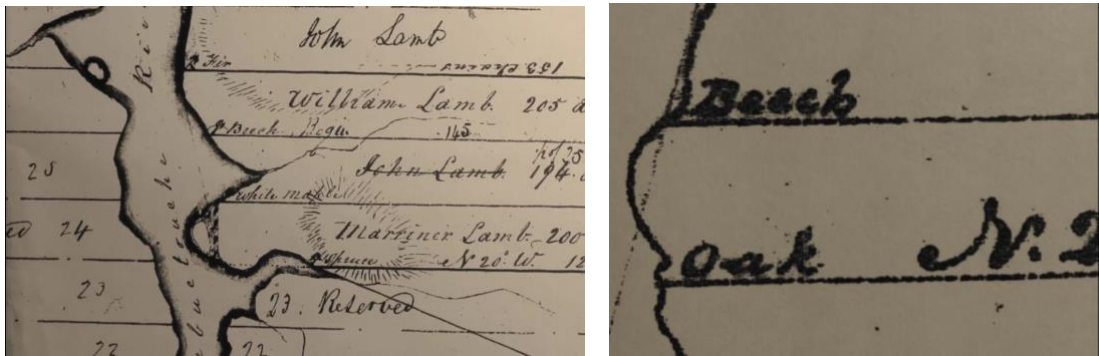 John Lamb
Riv
Fir
153 chains
William Lamb. 205 a
Beech Begu.
145
pt 25
25
John Lamb. 194
white maple
ed 24
Marriner Lamb. 200
Spruce
N 20° W. 12
23
23. Reserved
buctouche
22
22
Beech
Oak N. 2